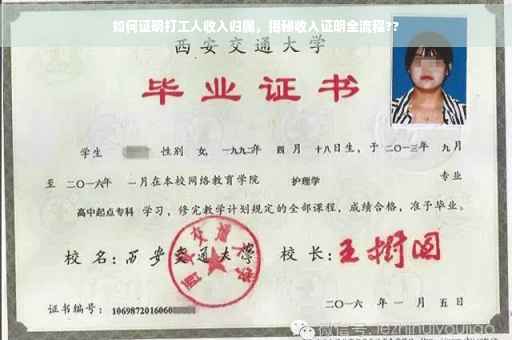 如何证明打工人收入归属，揭秘收入证明全流程??
西安交通大学
毕业证书
学生 性别 女, 一九九二年 四 月 十八日生，于 二〇一三年 九月
至 二〇一六年 一月在本校网络教育学院 护理学 专业
高中起点专科 学习，修完教学计划规定的全部课程，成绩合格，准予毕业。
校 名：西安交通大学 校 长：王树国
西安交通大学
证书编号：1069872016060
二〇一六 年 一 月 五 日
微信号: jiezhihuiyoujiao